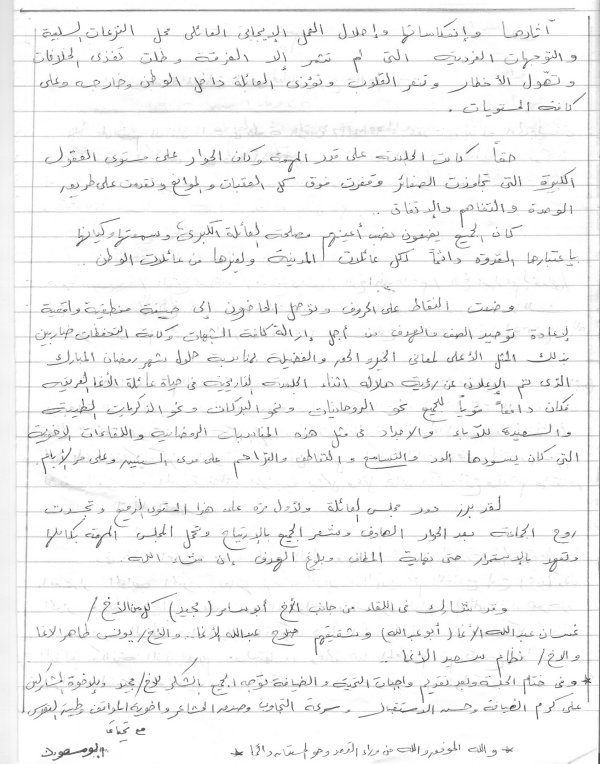 آثارها وإنتكاساتها وإحلال العمل الإيجابي العائلي محل النزعات السلبية
والتوجهات الفردية التي لم تثمر إلا الفرقة وظلت تغذى الخلافات
وتهول الأخطار وتنفر القلوب وتؤذى العائلة داخل الوطن وخارجه وعلى
كافة المستويات .
حقاً كانت الجلسة على قدر المهمة وكان الحوار على مستوى العقول
الكبيرة التى تجاوزت الصغائر وقفزت فوق كل العقبات والموانع وتقدمت على طريق
الوحدة والتفاهم والإتفاق ..
كان الجميع يضعون نصب أعينهم مصلحة العائلة الكبرى وسمعتها وكيانها
بإعتبارها القدوة دائماً لكل عائلات المدينة ولغيرها من عائلات الوطن .
وضعت النقاط على الحروف وتوصل الحاضرون إلى صيغة منطقية واقعية
لإعادة توحيد الصف والهدف من أجل إزالة كافة الشبهات وكافة التحفظات ضاربين
بذلك المثل الأعلى لمعانى الخير والحق والفضيلة بمناسبة حلول شهر رمضان المبارك
الذى تم الإعلان عن رؤية هلاله أثناء الجلسة التاريخية فى حياة عائلة الأغا العريقة
فكان دافعاً قوياً للجميع نحو الروحانيات ونحو البركات ونحو الذكريات الطيبة
والسعيدة للآباء والأجداد فى مثل هذه المناسبات الرمضانية واللقاءات الأخوية
التى كان يسودها الود والتسامح والتعاطف والتراحم على مدى السنين وعلى مر الأيام .
لقد برز دور مجلس العائلة ولأول مرة على هذا المستوى الرفيع وتجسدت
روح الجماعة بعد الحوار الهادف وشعر الجميع بالإرتياح وتحمل المجلس المهمة بكاملها
وتعهد بالإستمرار حتى نهاية المطاف وبلوغ الهدف بإذن الله .
وقد شارك فى اللقاء من جانب الأخ أبو سامر ( مجيد ) كل من الأخ /
غسان عبدالله الأغا ( أبو عبدالله ) وشقيقهم صلاح عبدالله الأغا . والأخ / يونس طاهر الأغا
والأخ / نظام سعيد الأغا .
* وفى ختام الجلسة وبعد تقديم واجبات التحية والضيافة توجه الجميع بالشكر للأخ / مجيد وللإخوة المشاركين
على كرم الضيافة وحسن الاستقبال وسرعة التجاوب وصدق المشاعر وأخوية المواقف وطيبة النفوس
مع تحيات
أبو مسعود
* والله الموفق والله من وراء القصد وهو المستعان دائماً *